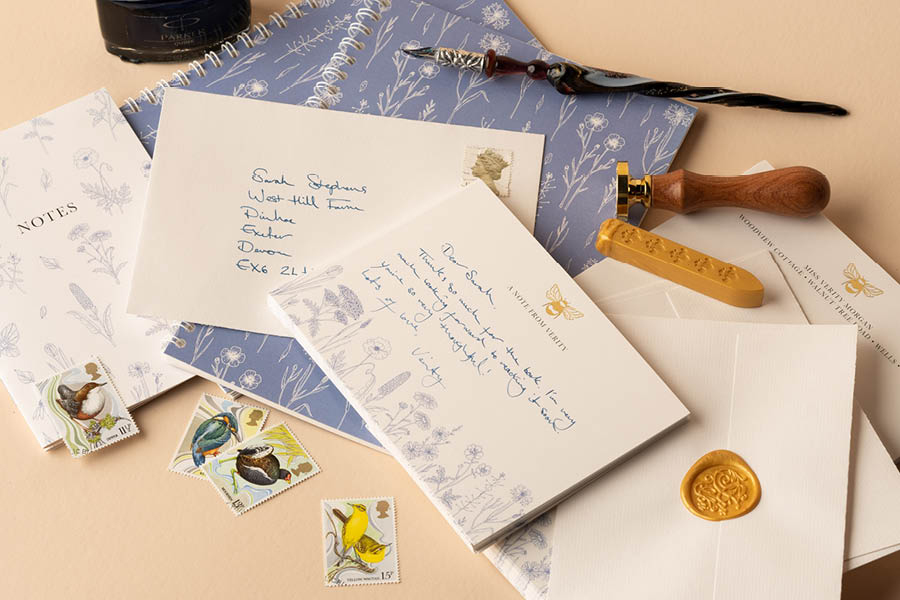 PARKER
QUINK
NOTES
Sarah Stephens
West Hill Farm
Exeter
Devon
EX6
A NOTE FROM VERITY
Dear Sarah,
Thanks so much for the book. I'm very
much looking forward to reading it soon.
You're so very thoughtful!
Lots of love, Verity
MISS VERITY MORGAN
WOODVIEW COTTAGE • WALNUT TREE ROAD • WELLS
YELLOW WAGTAIL
15P